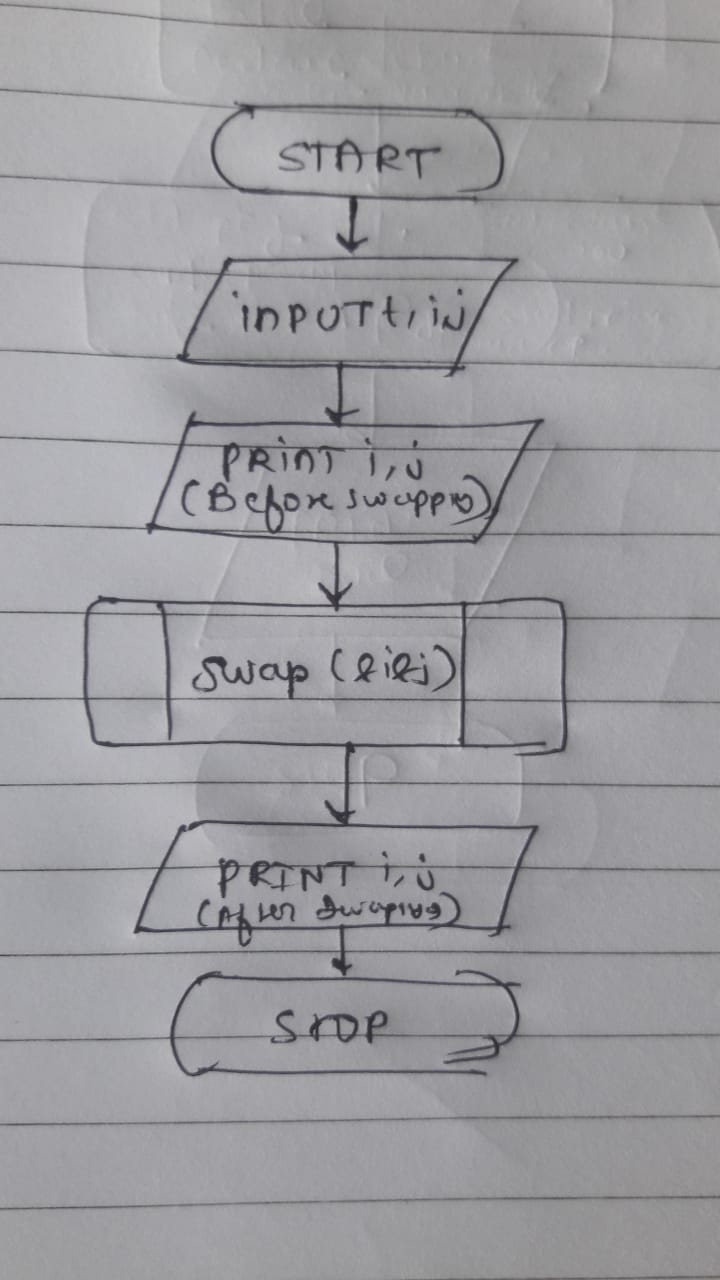 START
INPUT t, i j
PRINT i, j
(Before swapping)
swap (&i&j)
PRINT i, j
(After swaping)
STOP